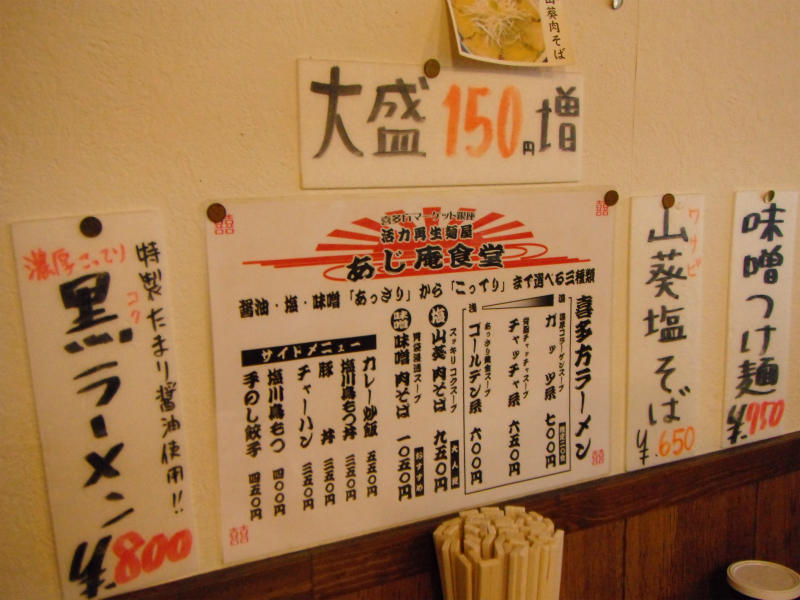 山葵肉そば
大盛150円増
濃厚こってり
特製たまり醤油使用!!
黒ラーメン
コク
¥800
喜多方マーケット銀座
活力再生麺屋
あじ庵食堂
醤油・塩・味噌「あっさり」から「こってり」まで選べる三種類
喜多方ラーメン
濃
濃厚コラーゲンスープ
ガッツ系 七〇〇円
背脂チャッチャスープ
チャッチャ系 六五〇円
浅
あっさり黄金スープ
ゴールデン系 六〇〇円
スッキリコクスープ
塩 山葵肉そば 九五〇円
大人気
味噌 味噌肉そば 一〇五〇円
おすすめ
サイドメニュー
カレー炒飯 五五〇円
塩川鳥もつ丼 三五〇円
豚丼 三五〇円
チャーハン 三五〇円
塩川鳥もつ 四〇〇円
手のし餃子 四五〇円
ワサビ
山葵塩そば
¥650
味噌つけ麺
¥950